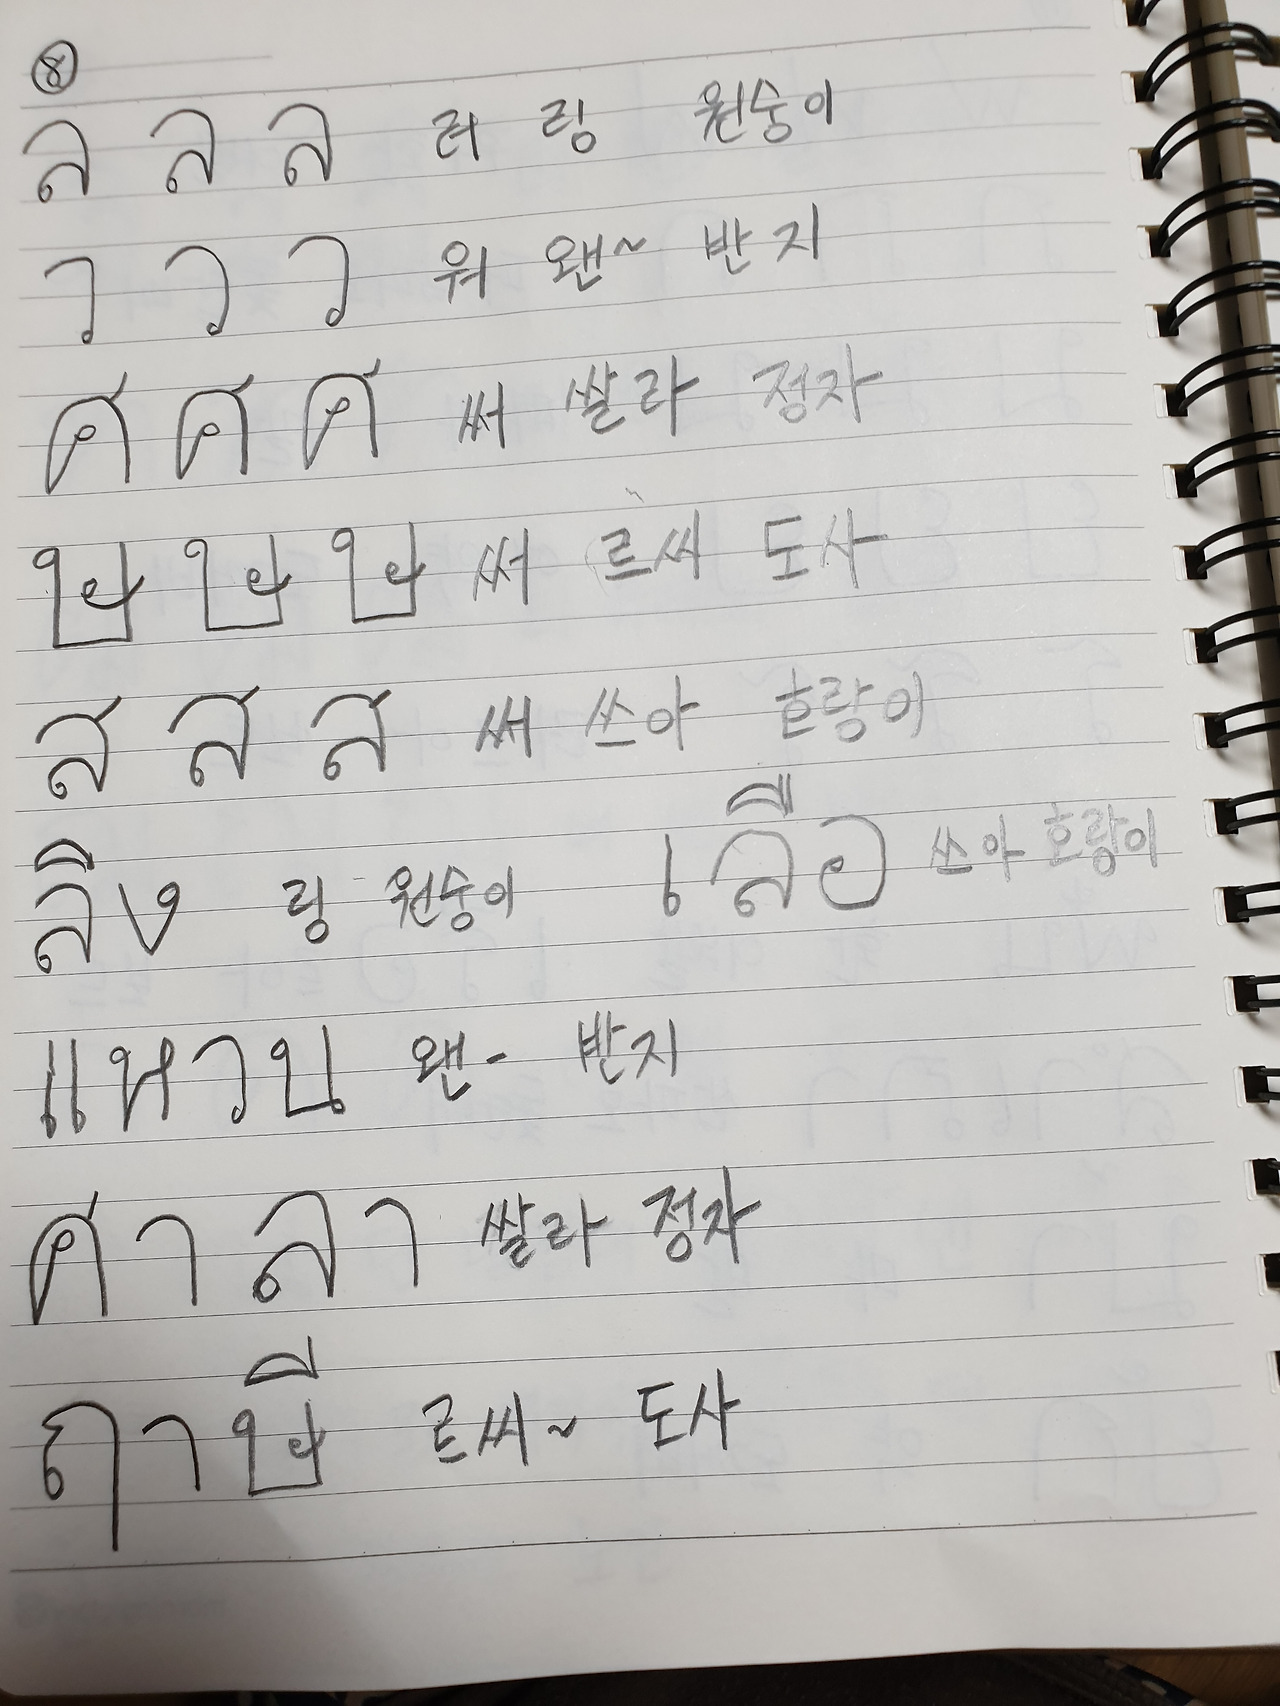 ⑧
ล ล ล 러 링 원숭이
ว ว ว 워 왠~ 반지
ศ ศ ศ 써 쌀라 정자
ษ ษ ษ 써 르씨 도사
ส ส ส 써 쓰아 호랑이
ลิง 링 원숭이 เลือ 쓰아 호랑이
แหวน 왠- 반지
ศาลา 쌀라 정자
ฤาษี 르씨~ 도사